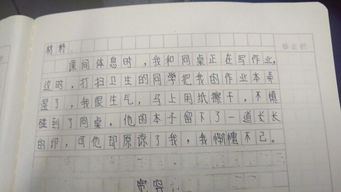 材料
课间休息时，我和同桌正在写作业，
这时，打扫卫生的同学把我的作业本弄
湿了，我很生气，马上用纸擦干，不慎
碰到了同桌。他的本子留下了一道长长
的印，可他却原谅了我，我惭愧不已。